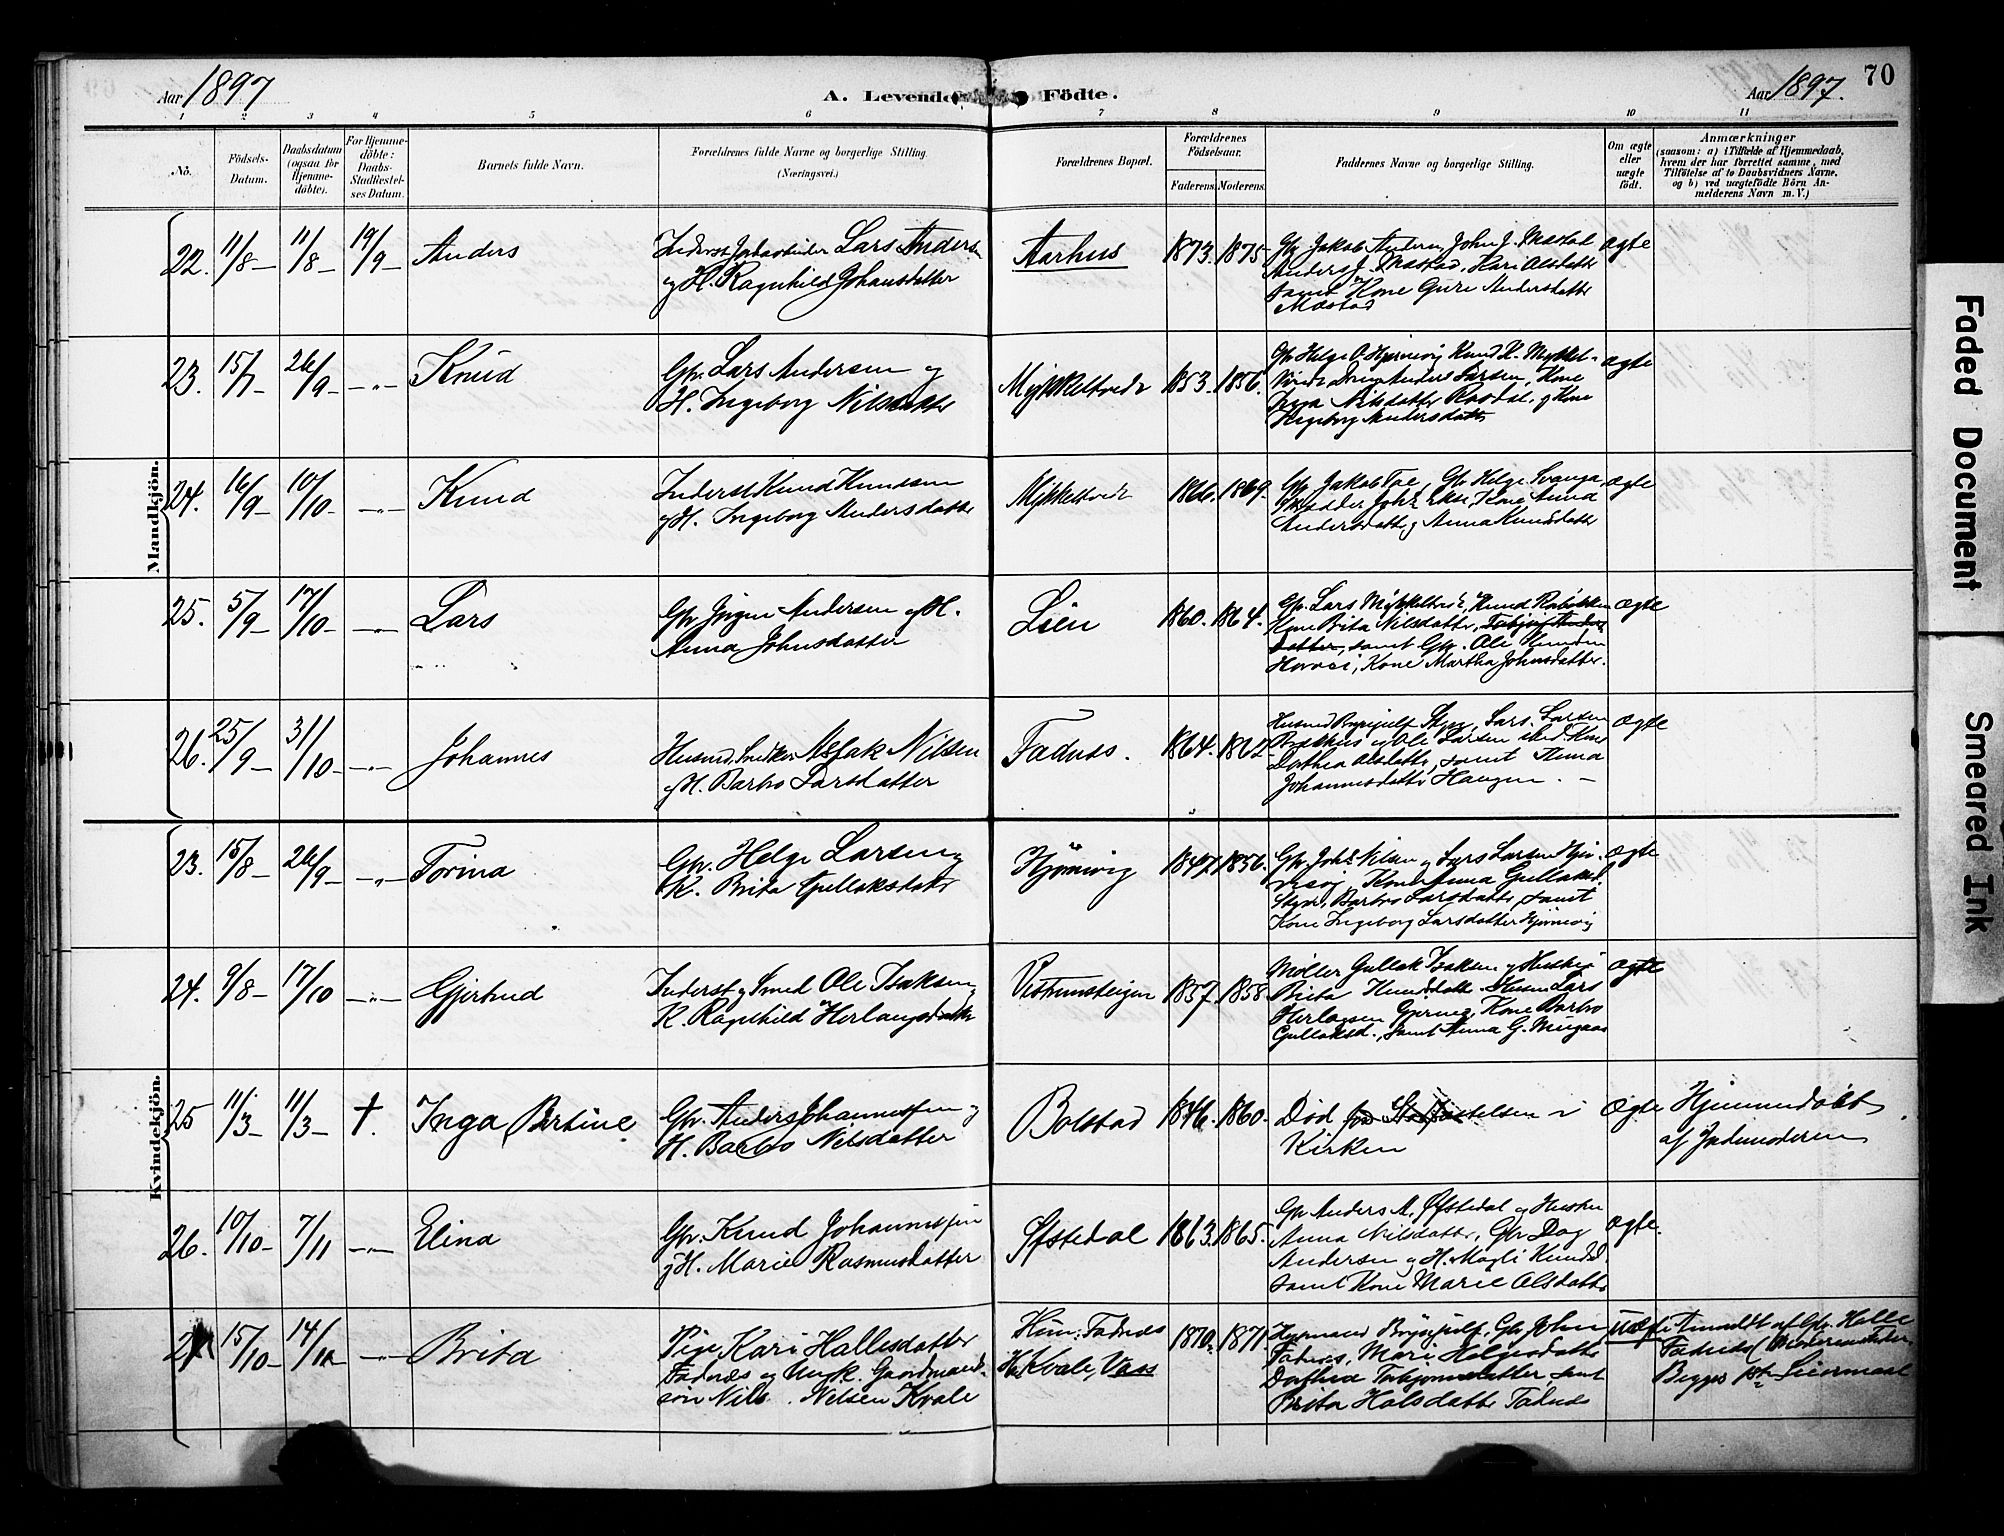 Aar 1897
A. Levende Födte.
Aar 1897.
70
1 2 3 4 5 6 7 8 9 10 11
No.
Födsels-Datum.
Daabsdatum (ogsaa for Hjemme-döbte).
For Hjemme-döbte: Daabs-Stadfæstel-ses Datum.
Barnets fulde Navn.
Forældrenes fulde Navne og borgerlige Stilling.
(Næringsvei.)
Forældrenes Bopæl.
Forældrenes Födselsaar.
Faderens. Moderens.
Faddernes Navne og borgerlige Stilling.
Om ægte eller uægte födt.
Anmærkninger
(saasom: a) i Tilfælde af Hjemmedaab,
hvem der har forrettet samme, med
Tilföielse af to Daabsvidners Navne,
og b) ved uægtefödte Börn An-
melderens Navn m. V.)
Mandkjön.
22. 11/8 11/8 19/9 Anders
Lars Anders
og H. Ragnhild Johansdatter
Aarhus 1873. 1875
Gbr Jakob Andersen, John J. Mæstad
Anders J. Mæstad, Kari Olsdatter
samt Kone Guri Andersdatter
Mæstad
ægte
23. 15/7 26/9 —"— Knud
Gbr. Lars Andersen og
H. Ingeborg Nilsdatter
Mykkeltvedt 1853. 1856.
Gbr Helge O. Hjørnevig Knud K. Mykkel-
Anders Larsen, Kone
Nilsdatter Rosdal, og Kone
Ingeborg Andersdatter
ægte
24. 16/9 10/10 —"— Knud
Inderst Knud Knudsen
og H. Ingeborg Andersdatter
Mykkeltvedt 1866. 1869.
Gbr Jakob Tæ, Gbr Helge Svanga
Kone Anna
Andersdatter, og Anna Knudsdatter
ægte
25. 5/9 17/10 —"— Lars
Gbr Jørgen Andersen og H.
Anna Johnsdatter
Lien 1860. 1864.
Gbr. Lars Mykkeltvedt, Knud
Kone Brita Nilsdatter,
datter, samt Gbr. Ole Knudsen
Kone Martha Johnsdatter.
ægte
26. 25/9 31/10 —"— Johannes
Husmd, Snedker Aslak Nilsen
og H. Barbro Larsdatter
Fadnes. 1864.
Husmd Brynjulf Styve, Lars Larsen
og Ole Larsen
Dorthea Olsdatter, samt Anna
Johannesdatter Haugen. —
ægte
Kvindekjön.
23. 15/8 26/9 —"— Torina
Gbr. Helge Larsen og
K. Brita Gullaksdatter
Hjørnevig 1847. 1856.
Gbr. Johs Nilsen og Lars Larsen Hjør-
nevig, Kone Anna Gullaksd.
Styve, Barbro Larsdatter, samt
Kone Ingeborg Larsdatter Hjørnevig
ægte
24. 9/8 17/10 —"— Gjertrud
Inderst og Smed Ole Isaksen og
K. Ragnhild Herlaugsdatter
1857. 1858
Møller Gullak Isaksen og Hustru
Brita Knudsdatter Husm Lars
Herlagsen Kone Barbro
Gullaksd., samt Anna G.
ægte
25 11/3 11/3 †. Inga Bertine
Gbr. Anders Johannessen og
H. Barbro Nilsdatter
Bolstad 1846. 1860.
Død før Stadfæstelsen i
Kirken
ægte
Hjemmedøbt
af Jordmoderen
26. 10/10 7/11 —"— Elina
Gbr. Knud Johannessen
og H. Marie Rasmusdatter
Øfstedal 1863. 1865.
Gbr Anders A. Øfstedal og Hustru
Anna Nilsdatter, Gbr Dag
Andersen og H. Magli Knudsd.
samt Kone Marie Olsdatter
ægte.
27 15/10 14/11 —"— Brita
Pige Kari Hallesdatter
Fadnes og Ungk. Gaardmand-
søn Nils Nilsen Kvale
Hun: Fadnes
Han Kvale, Voss
1870. 1871.
Husmand Brynjulf, Gbr John
Fadnes, Mari Helgesdatter
Dorthea Torbjørnsdatter samt
Brita Halsdatter Fadnes
uægte
Anmeldt af Gbr. Halle
Fadnes (Moderens Fader.
Begges 1ste Leiermaal
Faded Document
Smeared Ink